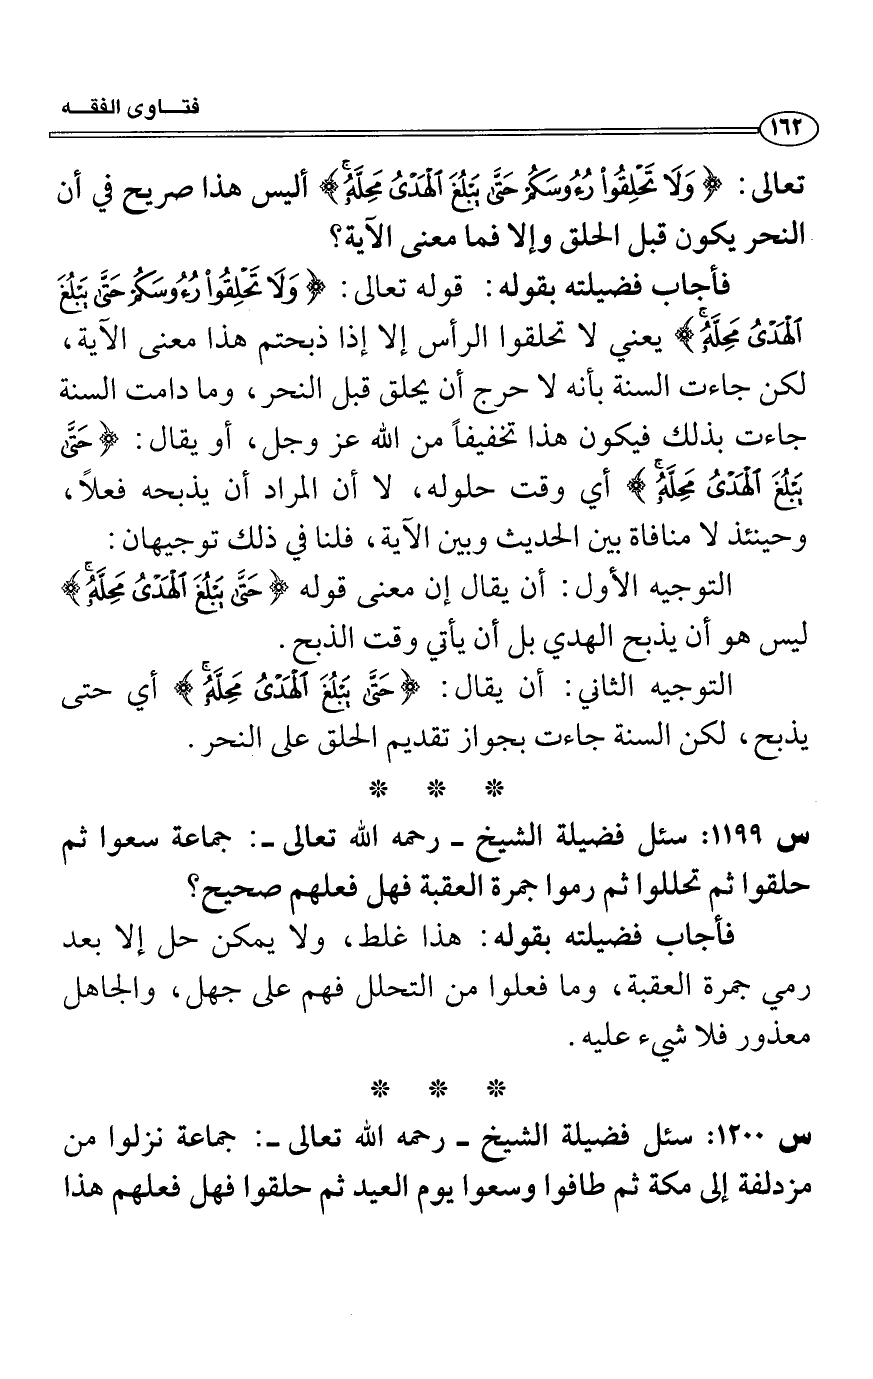 فتـــاوى الفقـــه
١٦٢
تعالى: ﴿ وَلَا تَحْلِقُوا۟ رُءُوسَكُمْ حَتَّىٰ يَبْلُغَ ٱلْهَدْىُ مَحِلَّهُۥ ﴾ أليس هذا صريح في أن
النحر يكون قبل الحلق وإلا فما معنى الآية؟
فأجاب فضيلته بقوله: قوله تعالى: ﴿ وَلَا تَحْلِقُوا۟ رُءُوسَكُمْ حَتَّىٰ يَبْلُغَ
ٱلْهَدْىُ مَحِلَّهُۥ ﴾ يعني لا تحلقوا الرأس إلا إذا ذبحتم هذا معنى الآية،
لكن جاءت السنة بأنه لا حرج أن يحلق قبل النحر، وما دامت السنة
جاءت بذلك فيكون هذا تخفيفاً من الله عز وجل، أو يقال: ﴿ حَتَّىٰ
يَبْلُغَ ٱلْهَدْىُ مَحِلَّهُۥ ﴾ أي وقت حلوله، لا أن المراد أن يذبحه فعلاً،
وحينئذ لا منافاة بين الحديث وبين الآية، فلنا في ذلك توجيهان:
التوجيه الأول: أن يقال إن معنى قوله ﴿ حَتَّىٰ يَبْلُغَ ٱلْهَدْىُ مَحِلَّهُۥ ﴾
ليس هو أن يذبح الهدي بل أن يأتي وقت الذبح.
التوجيه الثاني: أن يقال: ﴿ حَتَّىٰ يَبْلُغَ ٱلْهَدْىُ مَحِلَّهُۥ ﴾ أي حتى
يذبح، لكن السنة جاءت بجواز تقديم الحلق على النحر.
* * *
س ١١٩٩: سئل فضيلة الشيخ ـ رحمه الله تعالى ـ: جماعة سعوا ثم
حلقوا ثم تحللوا ثم رموا جمرة العقبة فهل فعلهم صحيح؟
فأجاب فضيلته بقوله: هذا غلط، ولا يمكن حل إلا بعد
رمي جمرة العقبة، وما فعلوا من التحلل فهم على جهل، والجاهل
معذور فلا شيء عليه.
* * *
س ١٢٠٠: سئل فضيلة الشيخ ـ رحمه الله تعالى ـ: جماعة نزلوا من
مزدلفة إلى مكة ثم طافوا وسعوا يوم العيد ثم حلقوا فهل فعلهم هذا